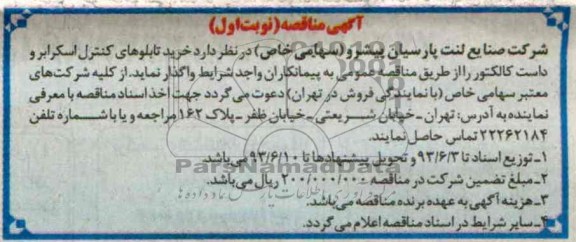 آگهی مناقصه (نوبت اول)
شرکت صنایع لنت پارسیان پیشرو (سهامی خاص) در نظر دارد خرید تابلوهای کنترل اسکرابر و
داست کالکتور را از طریق مناقصه عمومی به پیمانکاران واجد شرایط واگذار نماید. از کلیه شرکت‌های
معتبر سهامی خاص (با نمایندگی فروش در تهران) دعوت می گردد جهت اخذ اسناد مناقصه با معرفی
نماینده به آدرس: تهران - خیابان شریعتی - خیابان ظفر - پلاک ۱۶۲ مراجعه و یا با شماره تلفن
۲۲۲۶۲۱۸۴ تماس حاصل نمایند.
۱- توزیع اسناد تا ۹۳/۶/۳ و تحویل پیشنهادها تا ۹۳/۶/۱۰ می باشد.
۲- مبلغ تضمین شرکت در مناقصه ۲۰۰/۰۰۰/۰۰۰ ریال می باشد.
۳- هزینه آگهی به عهده برنده مناقصه می باشد.
۴- سایر شرایط در اسناد مناقصه اعلام می گردد.
ParsNamadData